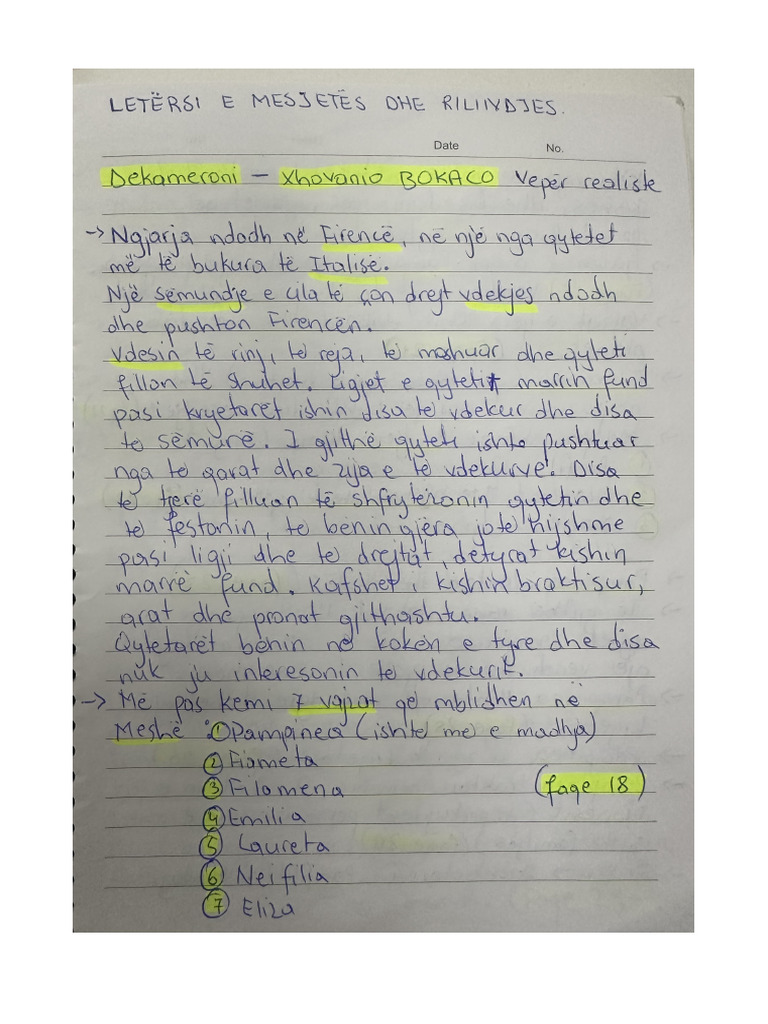 LETËRSI E MESJETËS DHE RILINDJES.
Date No.
Dekameroni - Xhovanio BOKACO Vepër realiste
→ Ngjarja ndodh në Firencë, në një nga qytetet
më të bukura të Italisë.
Një sëmundje e cila të çon drejt vdekjes ndodh
dhe pushton Firencën.
Vdesin të rinj, të reja, të moshuar dhe qyteti
fillon të shuhet. Ligjet e qytetit marrin fund
pasi kryetarët ishin disa të vdekur dhe disa
të sëmurë. I gjithë qyteti ishte pushtuar
nga të qarat dhe zija e të vdekurve. Disa
të tjerë filluan të shfrytëzonin qytetin dhe
të festonin, të bënin gjëra jo të hijshme
pasi ligji dhe të drejtat, detyrat kishin
marrë fund. Kafshët i kishin braktisur,
arat dhe pronat gjithashtu.
Qytetarët bënin në kokën e tyre dhe disa
nuk ju interesonin të vdekurit.
→ Më pas kemi 7 vajzat që mblidhen në
Meshë : ① Pampinea (ishte më e madhja)
② Fiameta
③ Filomena (faqe 18)
④ Emilia
⑤ Laureta
⑥ Neifilia
⑦ Eliza